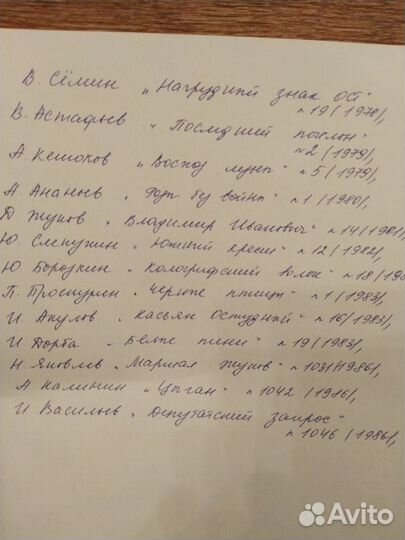 В. Сёмин „Нагрудный знак ОСТ"
№19 (1978),
В. Астафьев „Последний поклон"
№2 (1979),
А. Кешоков „Восход луны" №5 (1979),
А. Ананьев „Годы без войны" №1 (1980),
Д. Жуков „Владимир Иванович" №14 (1981),
Ю. Слепухин „Южный крест" №12 (1982),
Ю. Бородкин „Кологривский волок" №18 (198
П. Проскурин „Чёрные птицы" №1 (1983),
И. Акулов „Касьян Остудный" №16 (1983),
И. „Белые тени" №19 (1983),
Н. Яковлев „Маршал Жуков" №1031 (1986),
А. Калинин „Цыган" №1042 (1986),
И. Васильев „Депутатский запрос"
№1046 (1986),
Avito